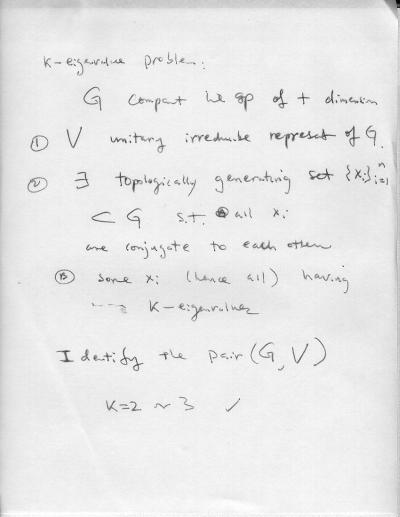 K-eigenvalue problem:
G compact Lie gp of + dimension
① V unitary irreducible represet of G.
② ∃ topologically generating set {xᵢ}ⁿᵢ₌₁
⊂ G s.t. all xᵢ
are conjugate to each other
③ some xᵢ (hence all) having
K-eigenvalues
Identify the pair (G, V)
K=2 ~ 3 ✓